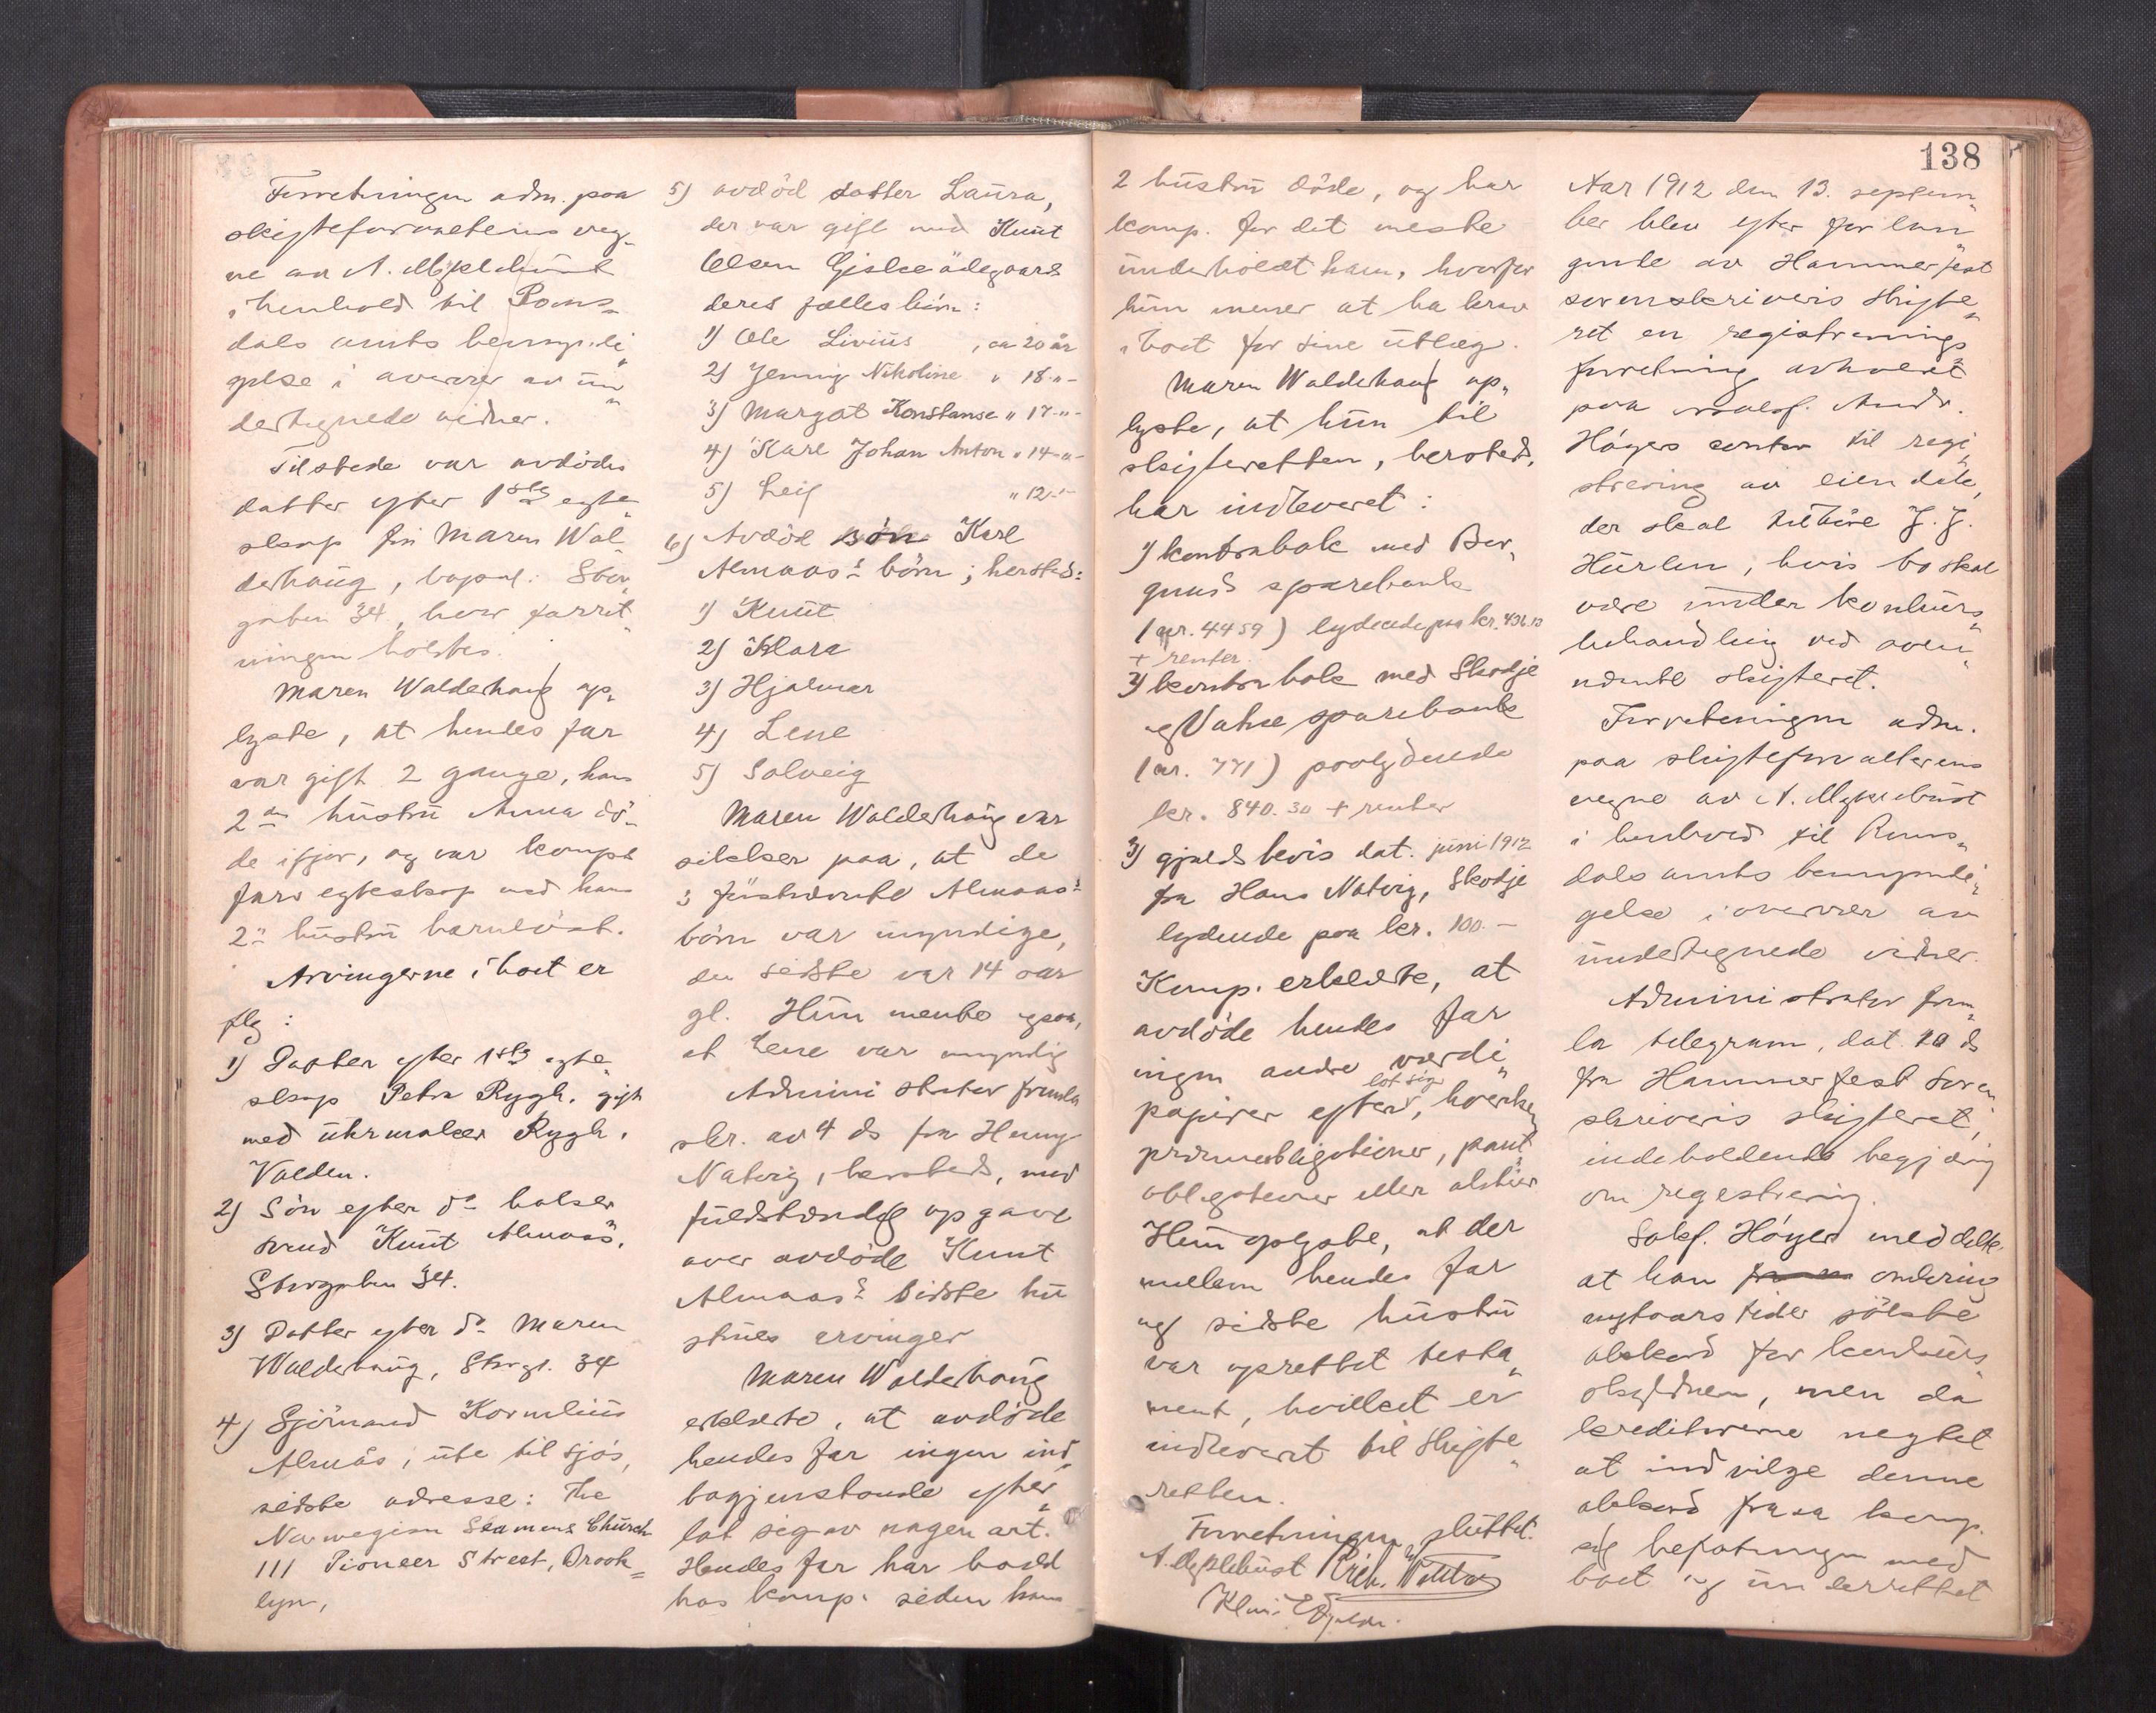 Forretningen adm. paa
skifteforvalterens veg„
ne av A. Myklebust
i henhold til Roms„
dals amts bemyndi„
gelse i overvær av un„
dertegnede vidner.
Tilstede var avdödes
datter efter 1ste egte„
skap fru Maren Wal„
derhaug, bopæl: Stor„
gaten 34, hvor forret„
ningen holdtes.
Maren Walderhaug op„
lyste, at hendes far
var gift 2 gange, hans
2den hustru Anna dö„
de ifjor, og var komps
fars egteskap med hans
2n hustru barnlöst.
Arvingerne i boet er
flg:
1) Datter efter 1ste egte„
skap Petra Rygh, gift
med uhrmaker Rygh,
Volden.
2) Sön efter do
Knut Almaas,
Storgaten 34.
3) Datter efter do Maren
Walderhaug, Storgt. 34
4) Sjömand Kornelius
Almås, ute til sjös,
sidste adresse: The
Norwegian Seamens Church
111 Pioneer Street, Brook=
lyn,
5) avdöd datter Laura,
der var gift med Knut
Olsen Gjelseödegaard
deres fælles börn:
1) Ole Livius , ca 20 år
2) Jenny Nikoline " 18 "-
3) Margot Konstanse " 17 "-
4) Karl Johan Anton " 14 "-
5) Leif " 12 "-
6) Avdöd sön Karl
Almaas' börn; hersteds:
1) Knut
2) Klara
3) Hjalmar
4) Lene
5) Solveig
Maren Walderhaug var
sikker paa, at de
3 förstnævnte Almaas'
börn var umyndige,
den sidste var 14 aar
gl. Hun mente ogsaa,
at Lene var umyndig
Administrator fremla
skr. av 4 ds fra Henny
Natvig, hersteds, med
fuldstændig opgave
over avdöde Knut
Almaas' sidste hu
strues arvinger
Maren Walderhaug
erklærte, at avdöde
hendes far ingen ind„
bogjenstande efter„
lot sig av nogen art.
Hendes far har bodd
hos komp. siden hans
2 hustru döde, og har
komp. for det meste
underholdt ham, hvorfor
hun mener at ha krav
i boet for sine utlæg.
Maren Walderhaug op„
lyste, at hun til
skifteretten, hersteds,
har indleveret:
1) kontrabok med Bor„
gunds sparebank
(nr. 4459) lydende paa kr. 436.13
+ renter.
2) kontrabok med Skodje
og Vatne sparebank
(nr. 771) paalydende
kr. 840.30 + renter
3) gjældsbevis dat. juni 1912
fra Hans Natvig, Skodje
lydende paa kr. 100.—
Komp. erklærte, at
avdöde hendes far
ingen andre værdi„
papirer efterlot sig, hverken
præmieobligationer, pant„
obligationer eller aktier
Hun oplyste, at der
mellem hendes far
og sidste hustru
var oprettet testa„
ment, hvilket er
indlevert til skifte„
retten.
Forretningen sluttet.
A. Myklebust
138
Aar 1912 den 13. septem„
ber blev efter forlan„
gende av Hammerfest
sorenskriveris skifte„
ret en registrerings
forretning avholdt
paa overrsf. Andr.
Höyers contor til regi„
strering av eiendele,
der skal tilhöre J. J.
Hurlen, hvis bo skal
være under konkurs„
behandling ved oven„
nævnte skifteret.
Forretningen adm.
paa skifteforvalterens
vegne av A. Myklebust
i henhold til Roms„
dals amts bemyndi„
gelse i overvær av
undertegnede vidner.
Administrator frem„
la telegram, dat. 10 ds
fra Hammerfest Soren„
skriveris skifteret,
indeholdende begjæring
om registrering.
Sakf. Höyer meddelte,
at han omkring
nytaarstider sökte
akkord for konkurs„
skyldneren, men da
kreditorerne negtet
at indvilge denne
akkord frasa komp.
sig befatningen med
boet og underrettet